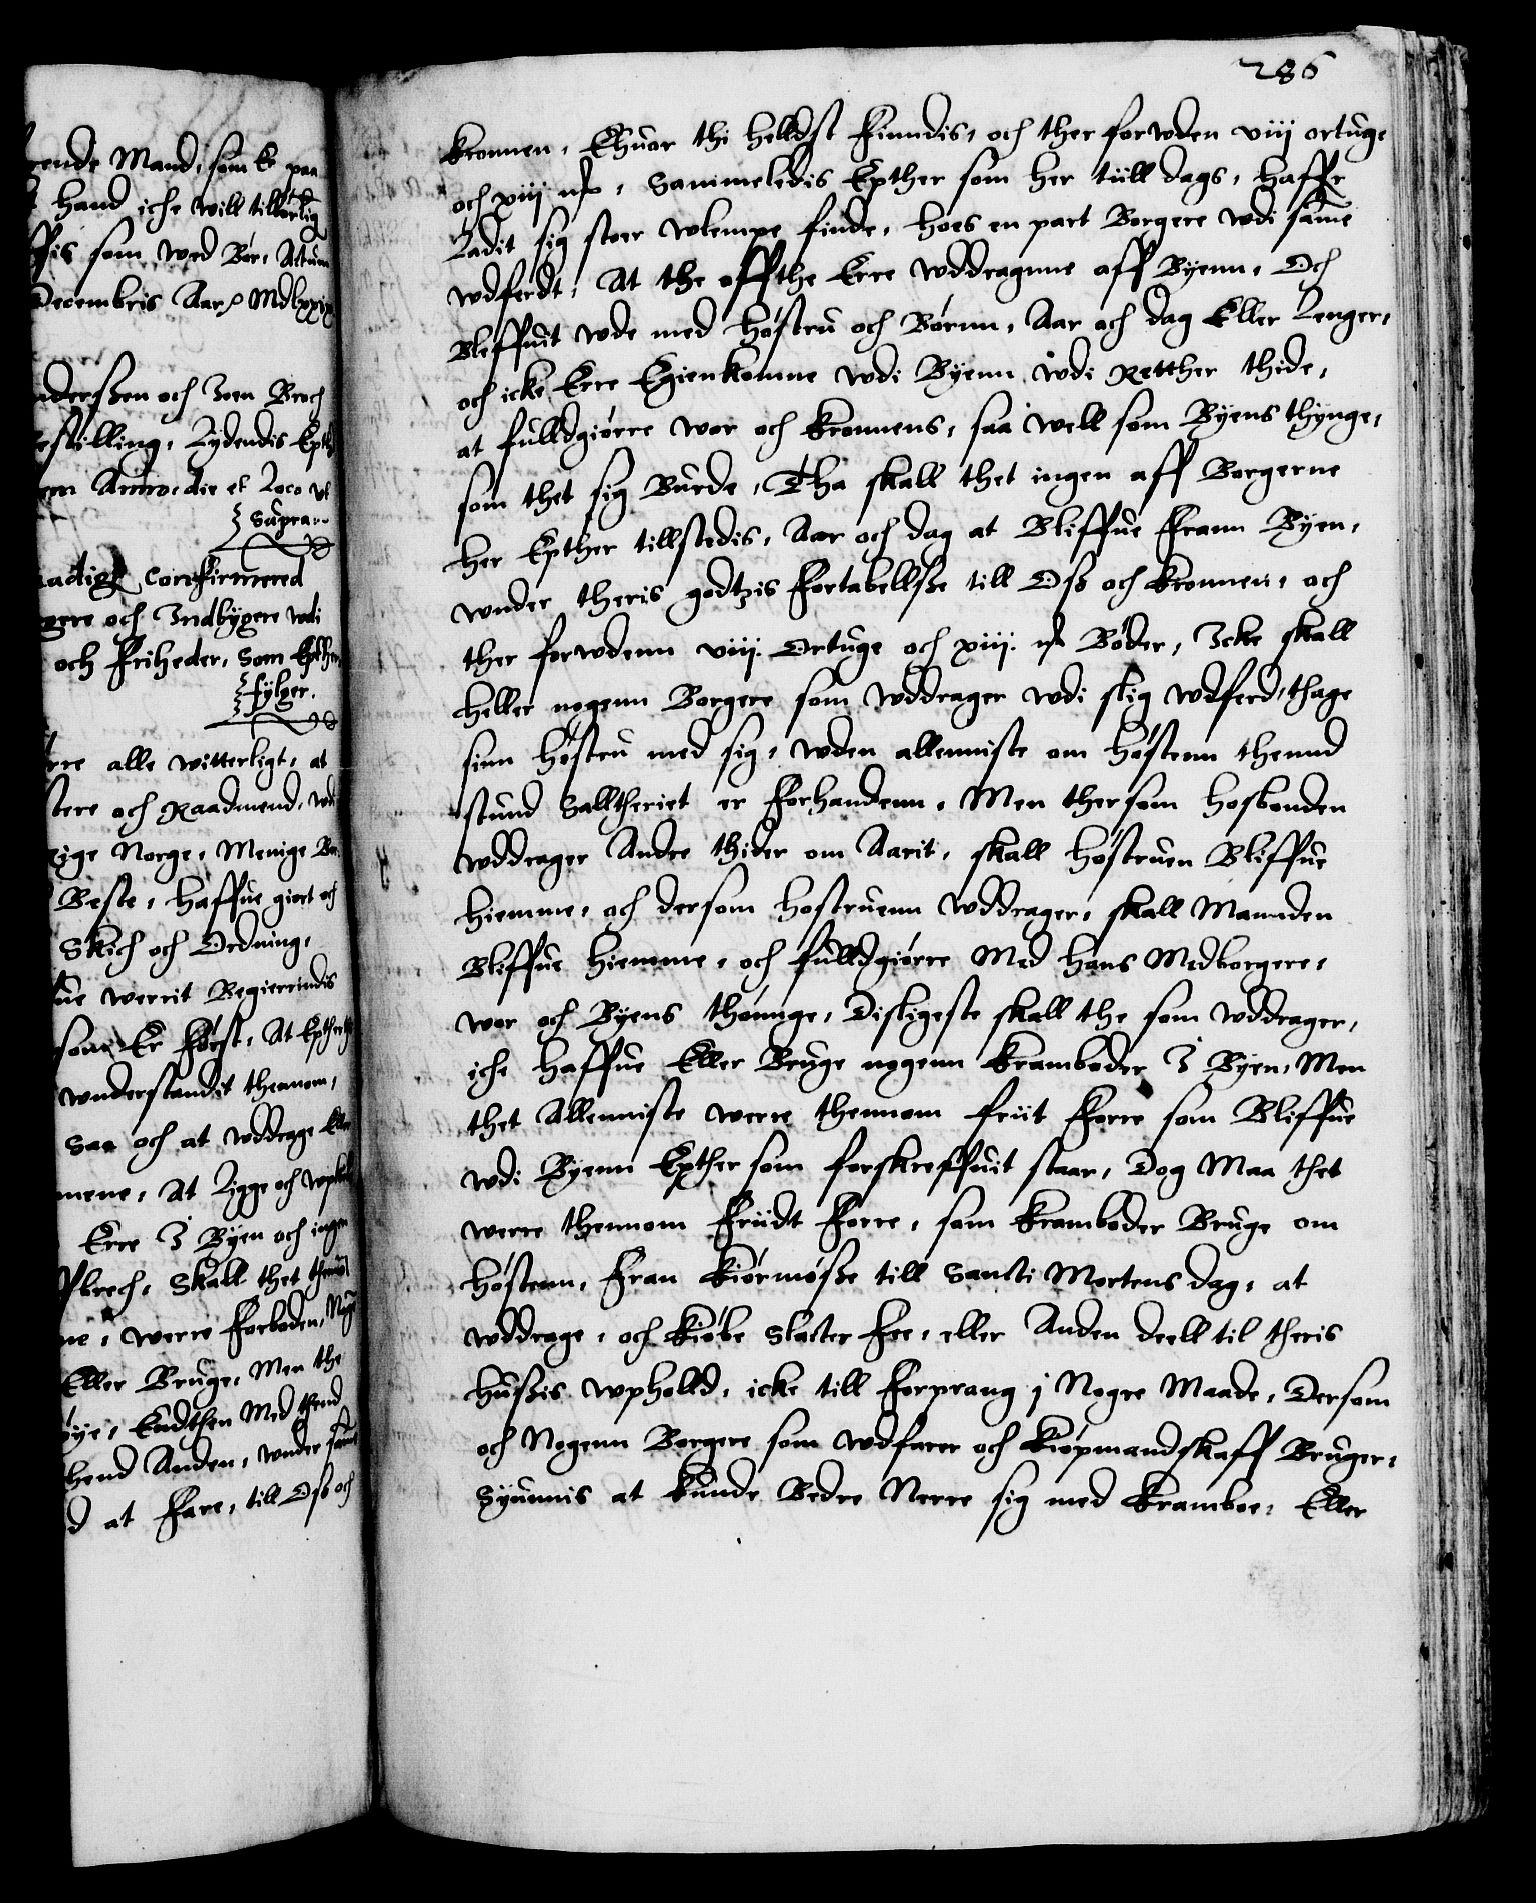 rende Mand, som Er paa
hand iche will tilbørlig
ffis som wed Bør, Actum
Decembris Aar &c Mdlxxix
nderßen och Joen Broch
estilling, Lydendis Epth
em Anno die et Loco vt
Supra
aadigst Confirmered
gere och Indbygere wdi
och Friheder, Som Epther
følger.
rre alle witterligt, at
tere och Raadmend, wdi
rige Norge, Menige Bor
Beste, haffue giort och
Skich och Ordning,
ue werrit Begierrindis
som Er først, At Epther
wnderstandit thennom,
Saa och at wddrage Eller
mene, At Ligge och
Erre I Byen och ingen
brech, Skall thet
ne, werre Forboden,
Eller Bruge, Men the
øye, Endthen Med thend
thend Anden, wnder same
d at Fare, till Oß och
286
kronnen, Ehuor thi helldst Finndis, och ther forwden viij ortuge
och xiij , Sammeledis Epther som her tiill dags, haffr
Ladit sig stoer wlempe finde, hoes en part Borgere wdi same
wdferdt, At the offthe Erre wddragnne aff Byenn, Och
Bleffuit wde med høstru och Børnn, Aar och dag Eller Lenger,
och icke Erre Egienkomne wdi Byenn wdi Retther thide,
at fulldgiørre wor och kronnens, saa well som Byens thynge,
som thet sig Burde, Tha skall thet ingen aff Borgerne
her Epther tillstedis, Aar och dag at Bliffue Frann Byen,
wnder theris godtzis Fortabellße till Oß och kronnen, och
ther forwdenn viij. Ortuge och xiij. Bøder, Icke skall
heller nogenn Borgere som wddrager wdi slig wdferd, thage
sinn høstru med sig, wden alleniste om høstenn thennd
stund Salltheriet er Forhandenn, Men thersom hosbonden
wddrager Andre thider om Aarit, skall høstruen Bliffue
hiemme, och dersom hostruenn wddrager, skall Mannden
Bliffue hiemme, och fulldgiørre Med hans Medborgere,
wor och Byens thounge, Disligeste skall the som wddrager,
iche haffue Eller Bruge nogenn kramboder I Byen, Men
thet Alleniste werre thennom friit Forre som Bliffue
wdi Byenn Epther som forskreffuit staar, Dog Maa thet
werre thennom Friidt Forre, som kramboder Bruge om
høstenn, Fran kiørmøße till Sancti Mortens dag, at
wddrage, och kiøbe Slacter Fee, eller Anden deell til theris
hußis wpholld, icke till Forprang j Nogre Maade, Dersom
och Nogenn Borgere som wdfarer och kiøpmandskaff Bruger,
Syunnis at kunde Bedre Nerre sig med kramboe, Eller